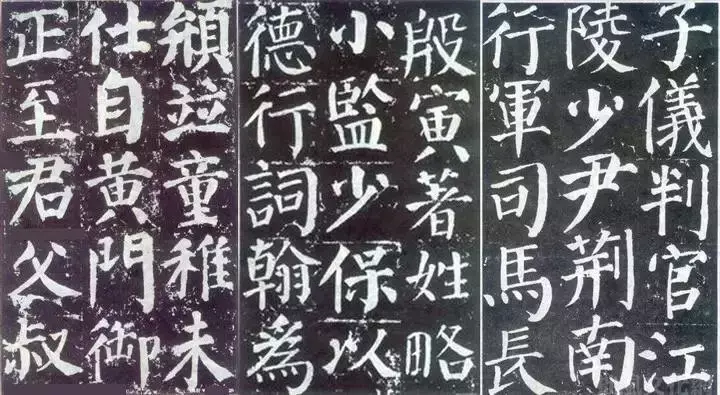 子儀判官江
陵少尹荆南
行軍司馬長
殷寅著姓略
小監少保以
德行詞翰爲
並童稚未
仕自黄門御
正至君父叔